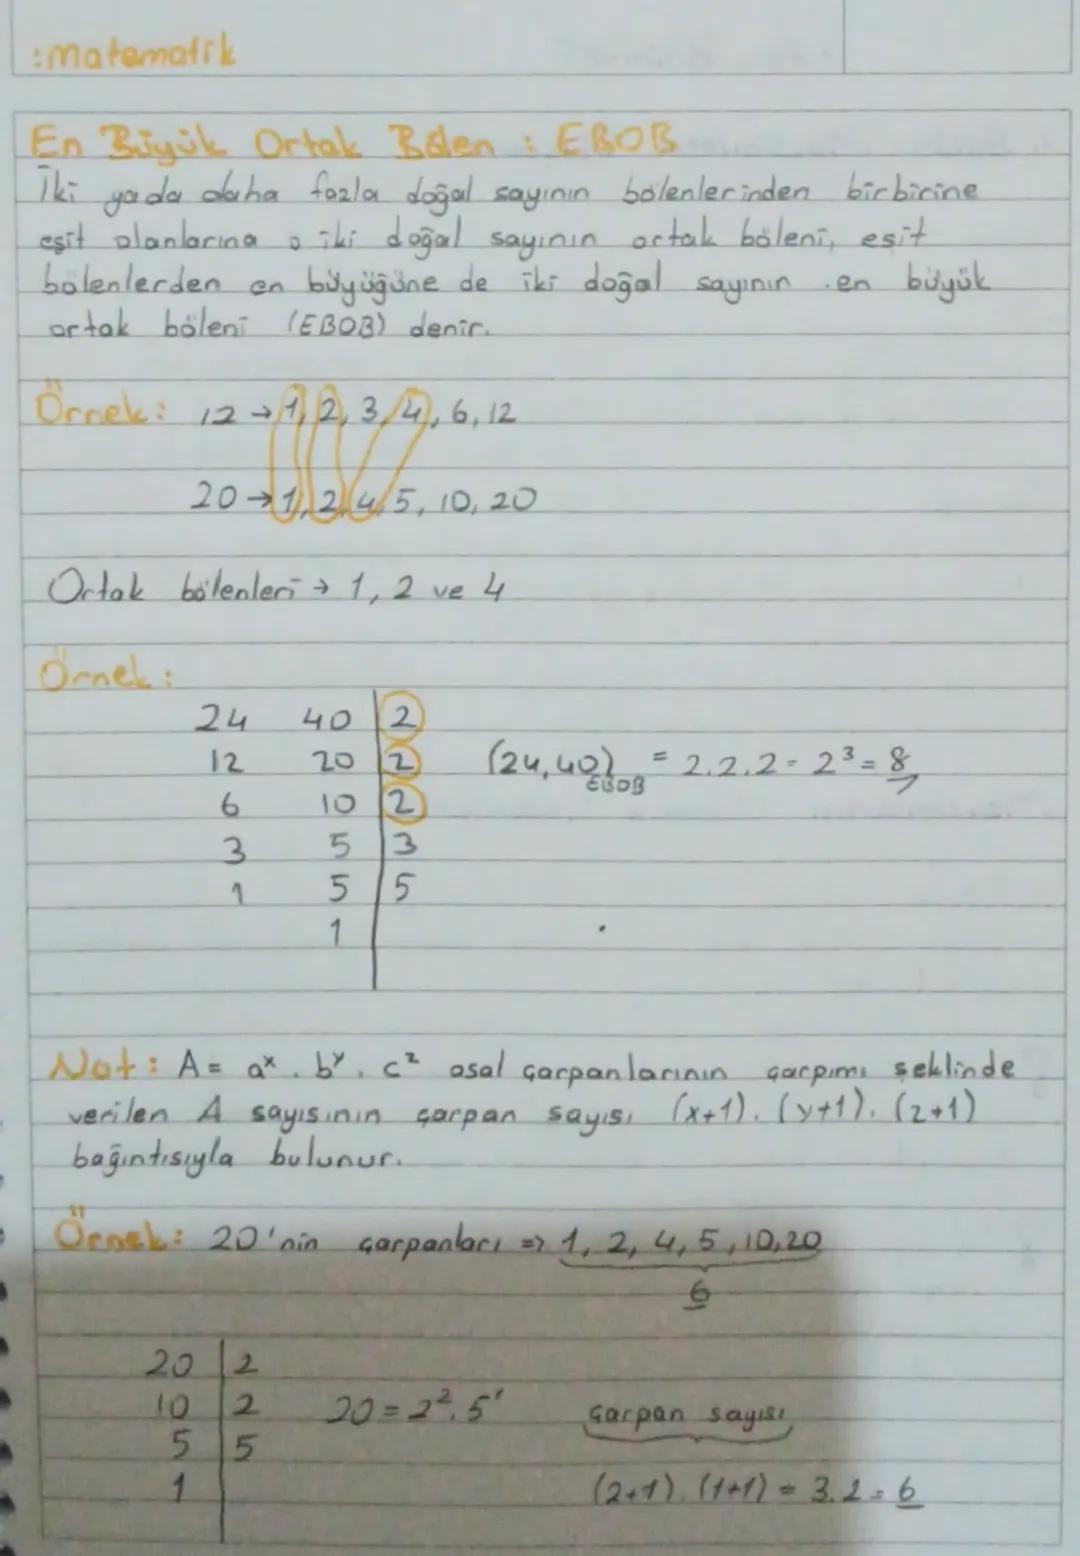 :matematik
En Büyük Ortak Bölen : EBOB
İki yada daha fazla doğal sayının bölenlerinden birbirine
eşit olanlarına o iki doğal sayının ortak böleni, eşit
bölenlerden en büyüğüne de iki doğal sayının en büyük
ortak böleni (EBOB) denir.
Örnek: 12 → 1, 2, 3, 4, 6, 12
20 → 1, 2, 4, 5, 10, 20
Ortak bölenleri → 1, 2 ve 4
Örnek:
24 40 | 2
12 20 | 2 (24,40)EBOB = 2.2.2 = 2³ = 8
6 10 | 2
3 5 | 3
1 5 | 5
1
Not: A = aˣ . bʸ . cᶻ asal çarpanlarının çarpımı şeklinde
verilen A sayısının çarpan sayısı (x+1). (y+1). (z+1)
bağıntısıyla bulunur.
Örnek: 20'nin çarpanları => 1, 2, 4, 5, 10, 20
6
20 | 2
10 | 2 20 = 2² . 5¹ çarpan sayısı
5 | 5
1 (2+1). (1+1) = 3.2 = 6